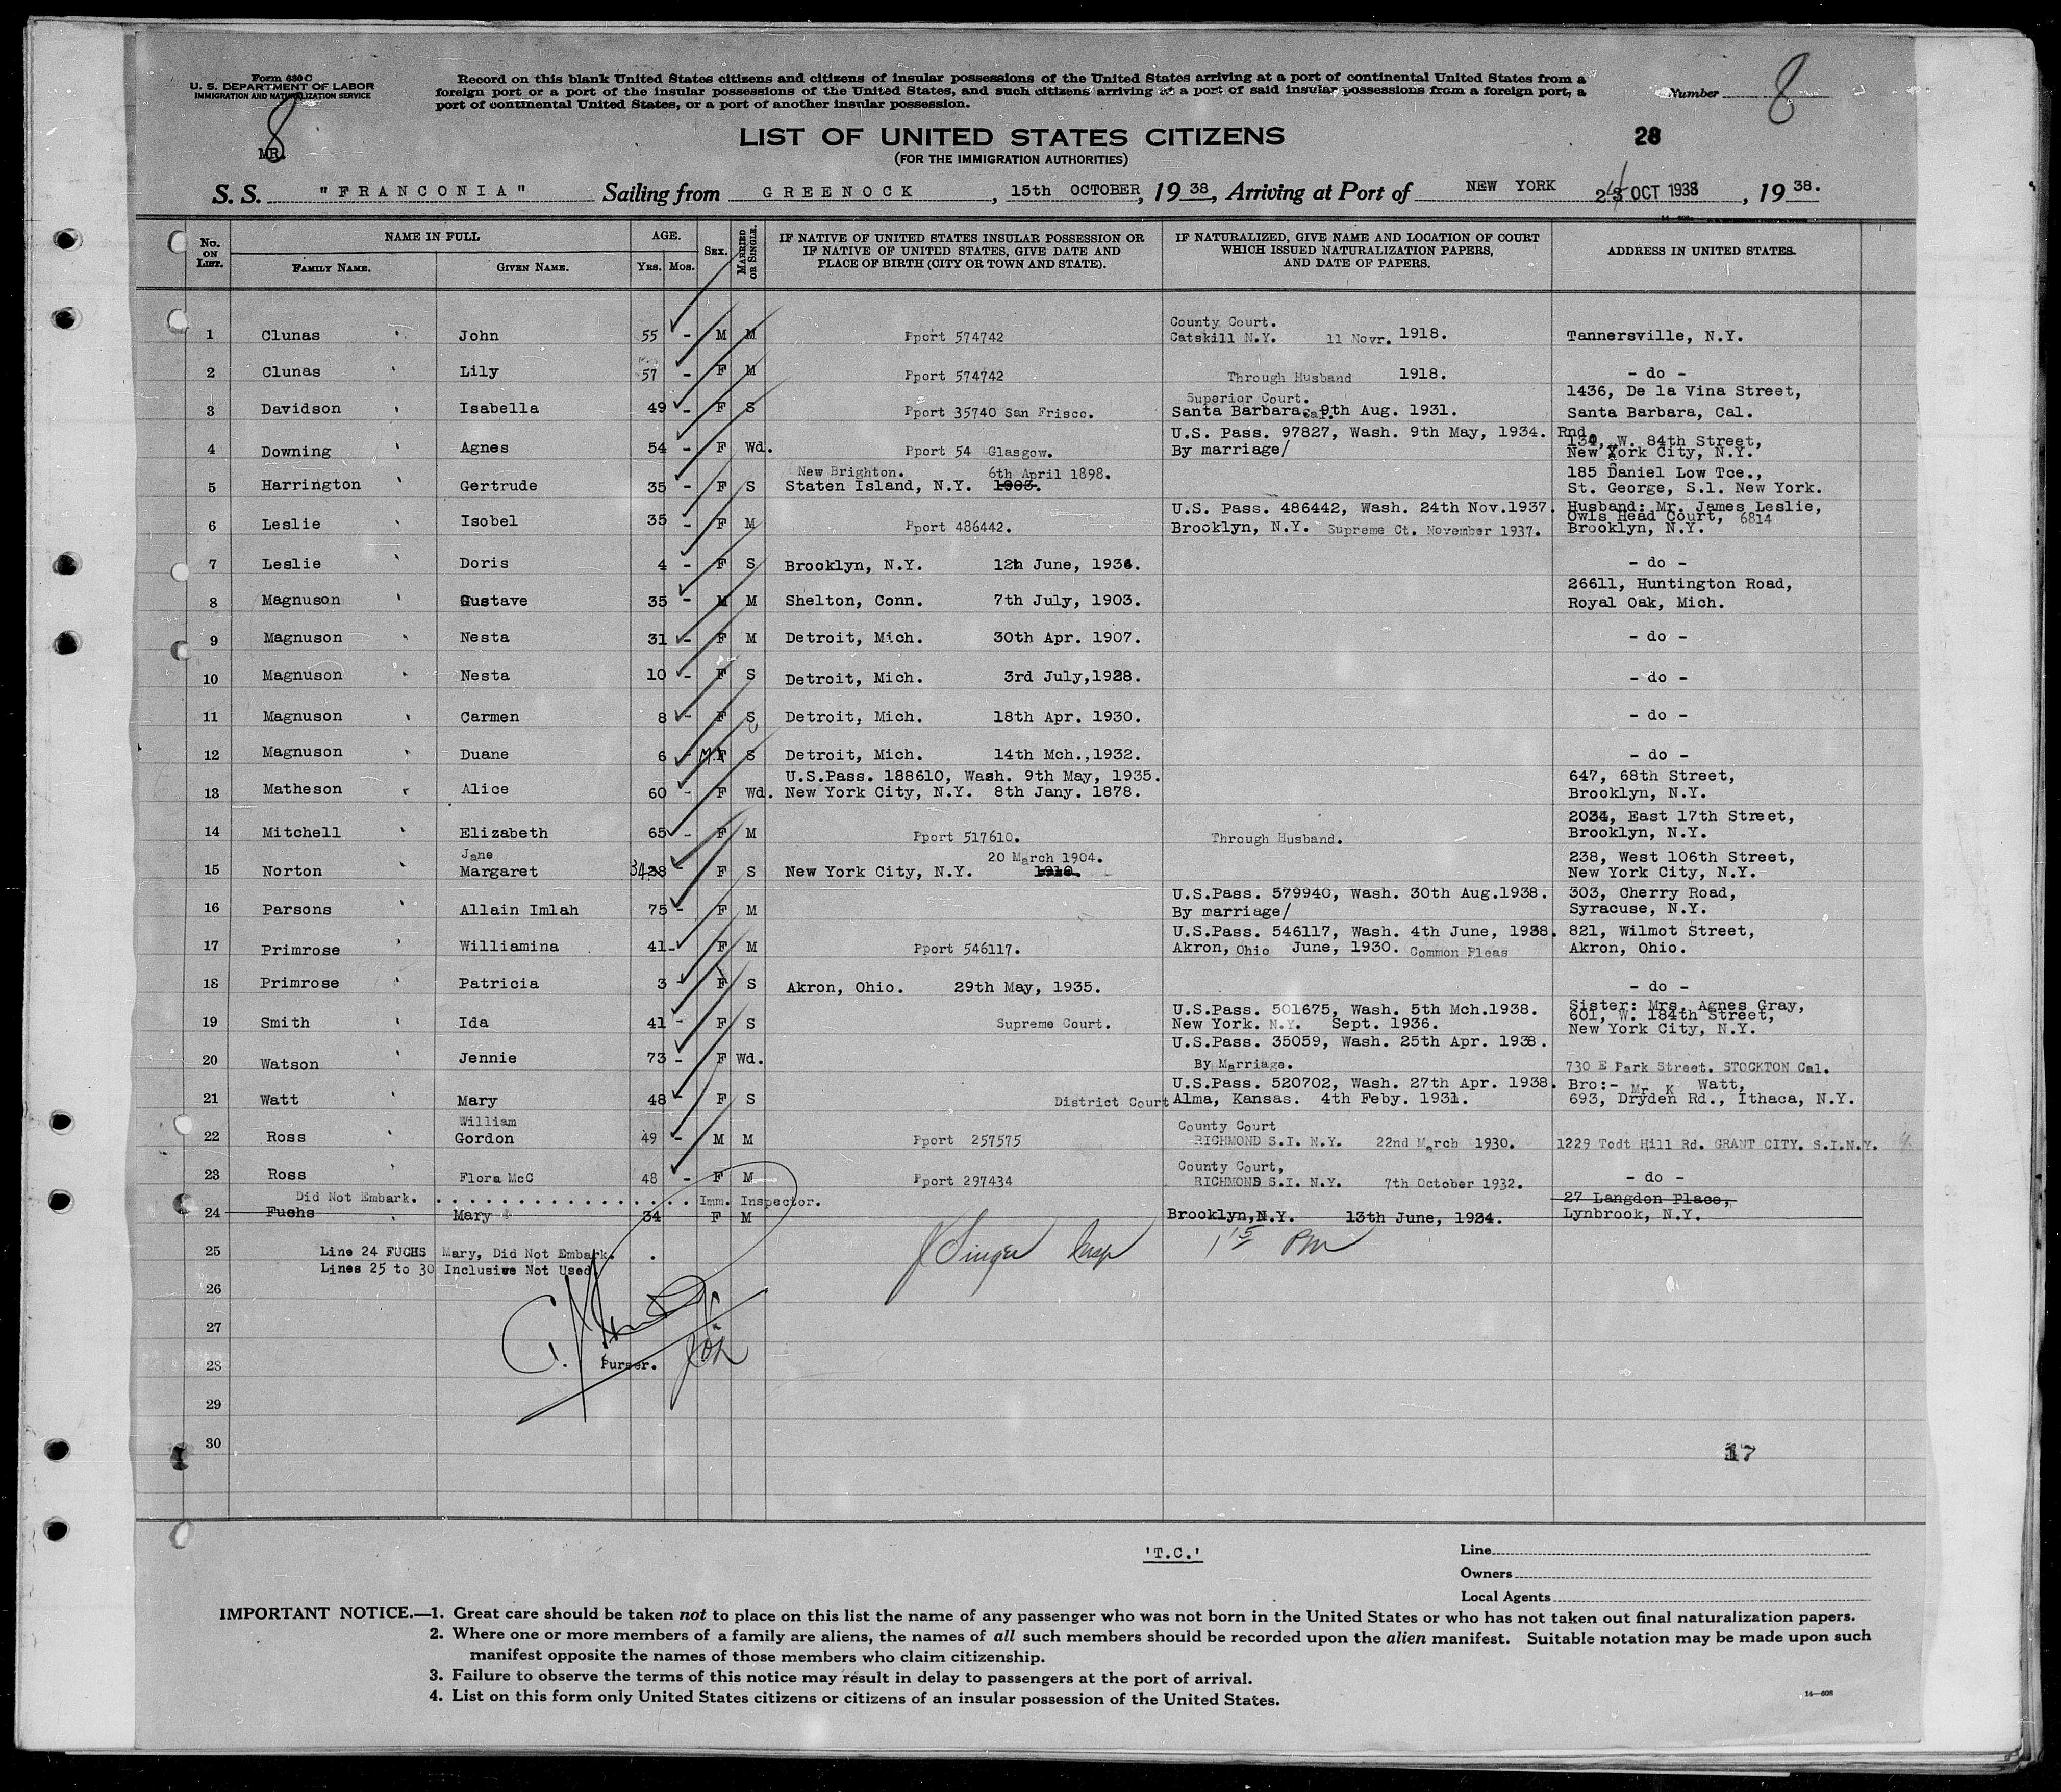 Form 630 C
U. S. DEPARTMENT OF LABOR
IMMIGRATION AND NATURALIZATION SERVICE
Record on this blank United States citizens and citizens of insular possessions of the United States arriving at a port of continental United States from a
foreign port or a port of the insular possessions of the United States, and such citizens arriving at a port of said insular possessions from a foreign port, a
port of continental United States, or a port of another insular possession.
Number 8
8
MR.
LIST OF UNITED STATES CITIZENS
(FOR THE IMMIGRATION AUTHORITIES)
28
S. S. "FRANCONIA" Sailing from GREENOCK, 15th OCTOBER, 1938, Arriving at Port of NEW YORK 24 OCT 1938, 1938.
No. ON LIST. NAME IN FULL AGE. SEX. MARRIED OR SINGLE. IF NATIVE OF UNITED STATES INSULAR POSSESSION OR IF NATIVE OF UNITED STATES, GIVE DATE AND PLACE OF BIRTH (CITY OR TOWN AND STATE). IF NATURALIZED, GIVE NAME AND LOCATION OF COURT WHICH ISSUED NATURALIZATION PAPERS, AND DATE OF PAPERS. ADDRESS IN UNITED STATES.
FAMILY NAME. GIVEN NAME. YRS. MOS.
County Court.
1 Clunas John 55 - M M Pport 574742 Catskill N.Y. 11 Novr. 1918. Tannersville, N.Y.
2 Clunas Lily 57 - F M Pport 574742 Through Husband 1918. - do -
Superior Court. 1436, De la Vina Street,
3 Davidson Isabella 49 - F S Pport 35740 San Frisco. Santa Barbara Cal. 9th Aug. 1931. Santa Barbara, Cal.
U.S. Pass. 97827, Wash. 9th May, 1934. Rnd. 134, W. 84th Street,
4 Downing Agnes 54 - F Wd. Pport 54 Glasgow. By marriage/ New York City, N.Y.
New Brighton. 6th April 1898. 185 Daniel Low Tce.,
5 Harrington Gertrude 35 - F S Staten Island, N.Y. 1903. St. George, S.l. New York.
U.S. Pass. 486442, Wash. 24th Nov.1937. Husband: Mr. James Leslie,
Owls Head Court, 6814
6 Leslie Isobel 35 - F M Pport 486442. Brooklyn, N.Y. Supreme Ct. November 1937. Brooklyn, N.Y.
7 Leslie Doris 4 - F S Brooklyn, N.Y. 12th June, 1934. - do -
26611, Huntington Road,
8 Magnuson Gustave 35 - M M Shelton, Conn. 7th July, 1903. Royal Oak, Mich.
9 Magnuson Nesta 31 - F M Detroit, Mich. 30th Apr. 1907. - do -
10 Magnuson Nesta 10 - F S Detroit, Mich. 3rd July,1928. - do -
11 Magnuson Carmen 8 - F S Detroit, Mich. 18th Apr. 1930. - do -
12 Magnuson Duane 6 - M. F S Detroit, Mich. 14th Mch.,1932. - do -
U.S.Pass. 188610, Wash. 9th May, 1935. 647, 68th Street,
13 Matheson Alice 60 - F Wd. New York City, N.Y. 8th Jany. 1878. Brooklyn, N.Y.
2034, East 17th Street,
14 Mitchell Elizabeth 65 - F M Pport 517610. Through Husband. Brooklyn, N.Y.
Jane 20 March 1904. 238, West 106th Street,
15 Norton Margaret 34 28 F S New York City, N.Y. 1910. New York City, N.Y.
U.S.Pass. 579940, Wash. 30th Aug.1938. 303, Cherry Road,
16 Parsons Allain Imlah 75 - F M By marriage/ Syracuse, N.Y.
U.S.Pass. 546117, Wash. 4th June, 1938. 821, Wilmot Street,
17 Primrose Williamina 41 - F M Pport 546117. Akron, Ohio June, 1930. Common Pleas Akron, Ohio.
18 Primrose Patricia 3 F S Akron, Ohio. 29th May, 1935. - do -
U.S.Pass. 501675, Wash. 5th Mch.1938. Sister: Mrs. Agnes Gray,
601, W. 184th Street,
19 Smith Ida 41 - F S Supreme Court. New York. N.Y. Sept. 1936. New York City, N.Y.
U.S.Pass. 35059, Wash. 25th Apr. 1938.
20 Watson Jennie 73 - F Wd. By Marriage. 730 E Park Street. STOCKTON Cal.
U.S.Pass. 520702, Wash. 27th Apr. 1938. Bro:- Mr. K Watt,
21 Watt Mary 48 - F S District Court Alma, Kansas. 4th Feby. 1931. 693, Dryden Rd., Ithaca, N.Y.
William County Court
22 Ross Gordon 49 - M M Pport 257575 RICHMOND S.I. N.Y. 22nd March 1930. 1229 Todt Hill Rd. GRANT CITY. S.I.N.Y.
County Court,
23 Ross Flora McC 48 - F M Pport 297434 RICHMOND S.I. N.Y. 7th October 1932. - do -
Did Not Embark. . . . . . . . . . . . . . . . . . Imm. Inspector. 27 Langdon Place,
24 Fuchs Mary 34 F M Brooklyn, N.Y. 13th June, 1924. Lynbrook, N.Y.
J Singer Insp 1 15 PM
25 Line 24 FUCHS Mary, Did Not Embark.
Lines 25 to 30 Inclusive Not Used.
26
27
28 Purser.
29
30
17
'T.C.'
Line
Owners
Local Agents
IMPORTANT NOTICE.—1. Great care should be taken not to place on this list the name of any passenger who was not born in the United States or who has not taken out final naturalization papers.
2. Where one or more members of a family are aliens, the names of all such members should be recorded upon the alien manifest. Suitable notation may be made upon such
manifest opposite the names of those members who claim citizenship.
3. Failure to observe the terms of this notice may result in delay to passengers at the port of arrival.
4. List on this form only United States citizens or citizens of an insular possession of the United States.
14—608